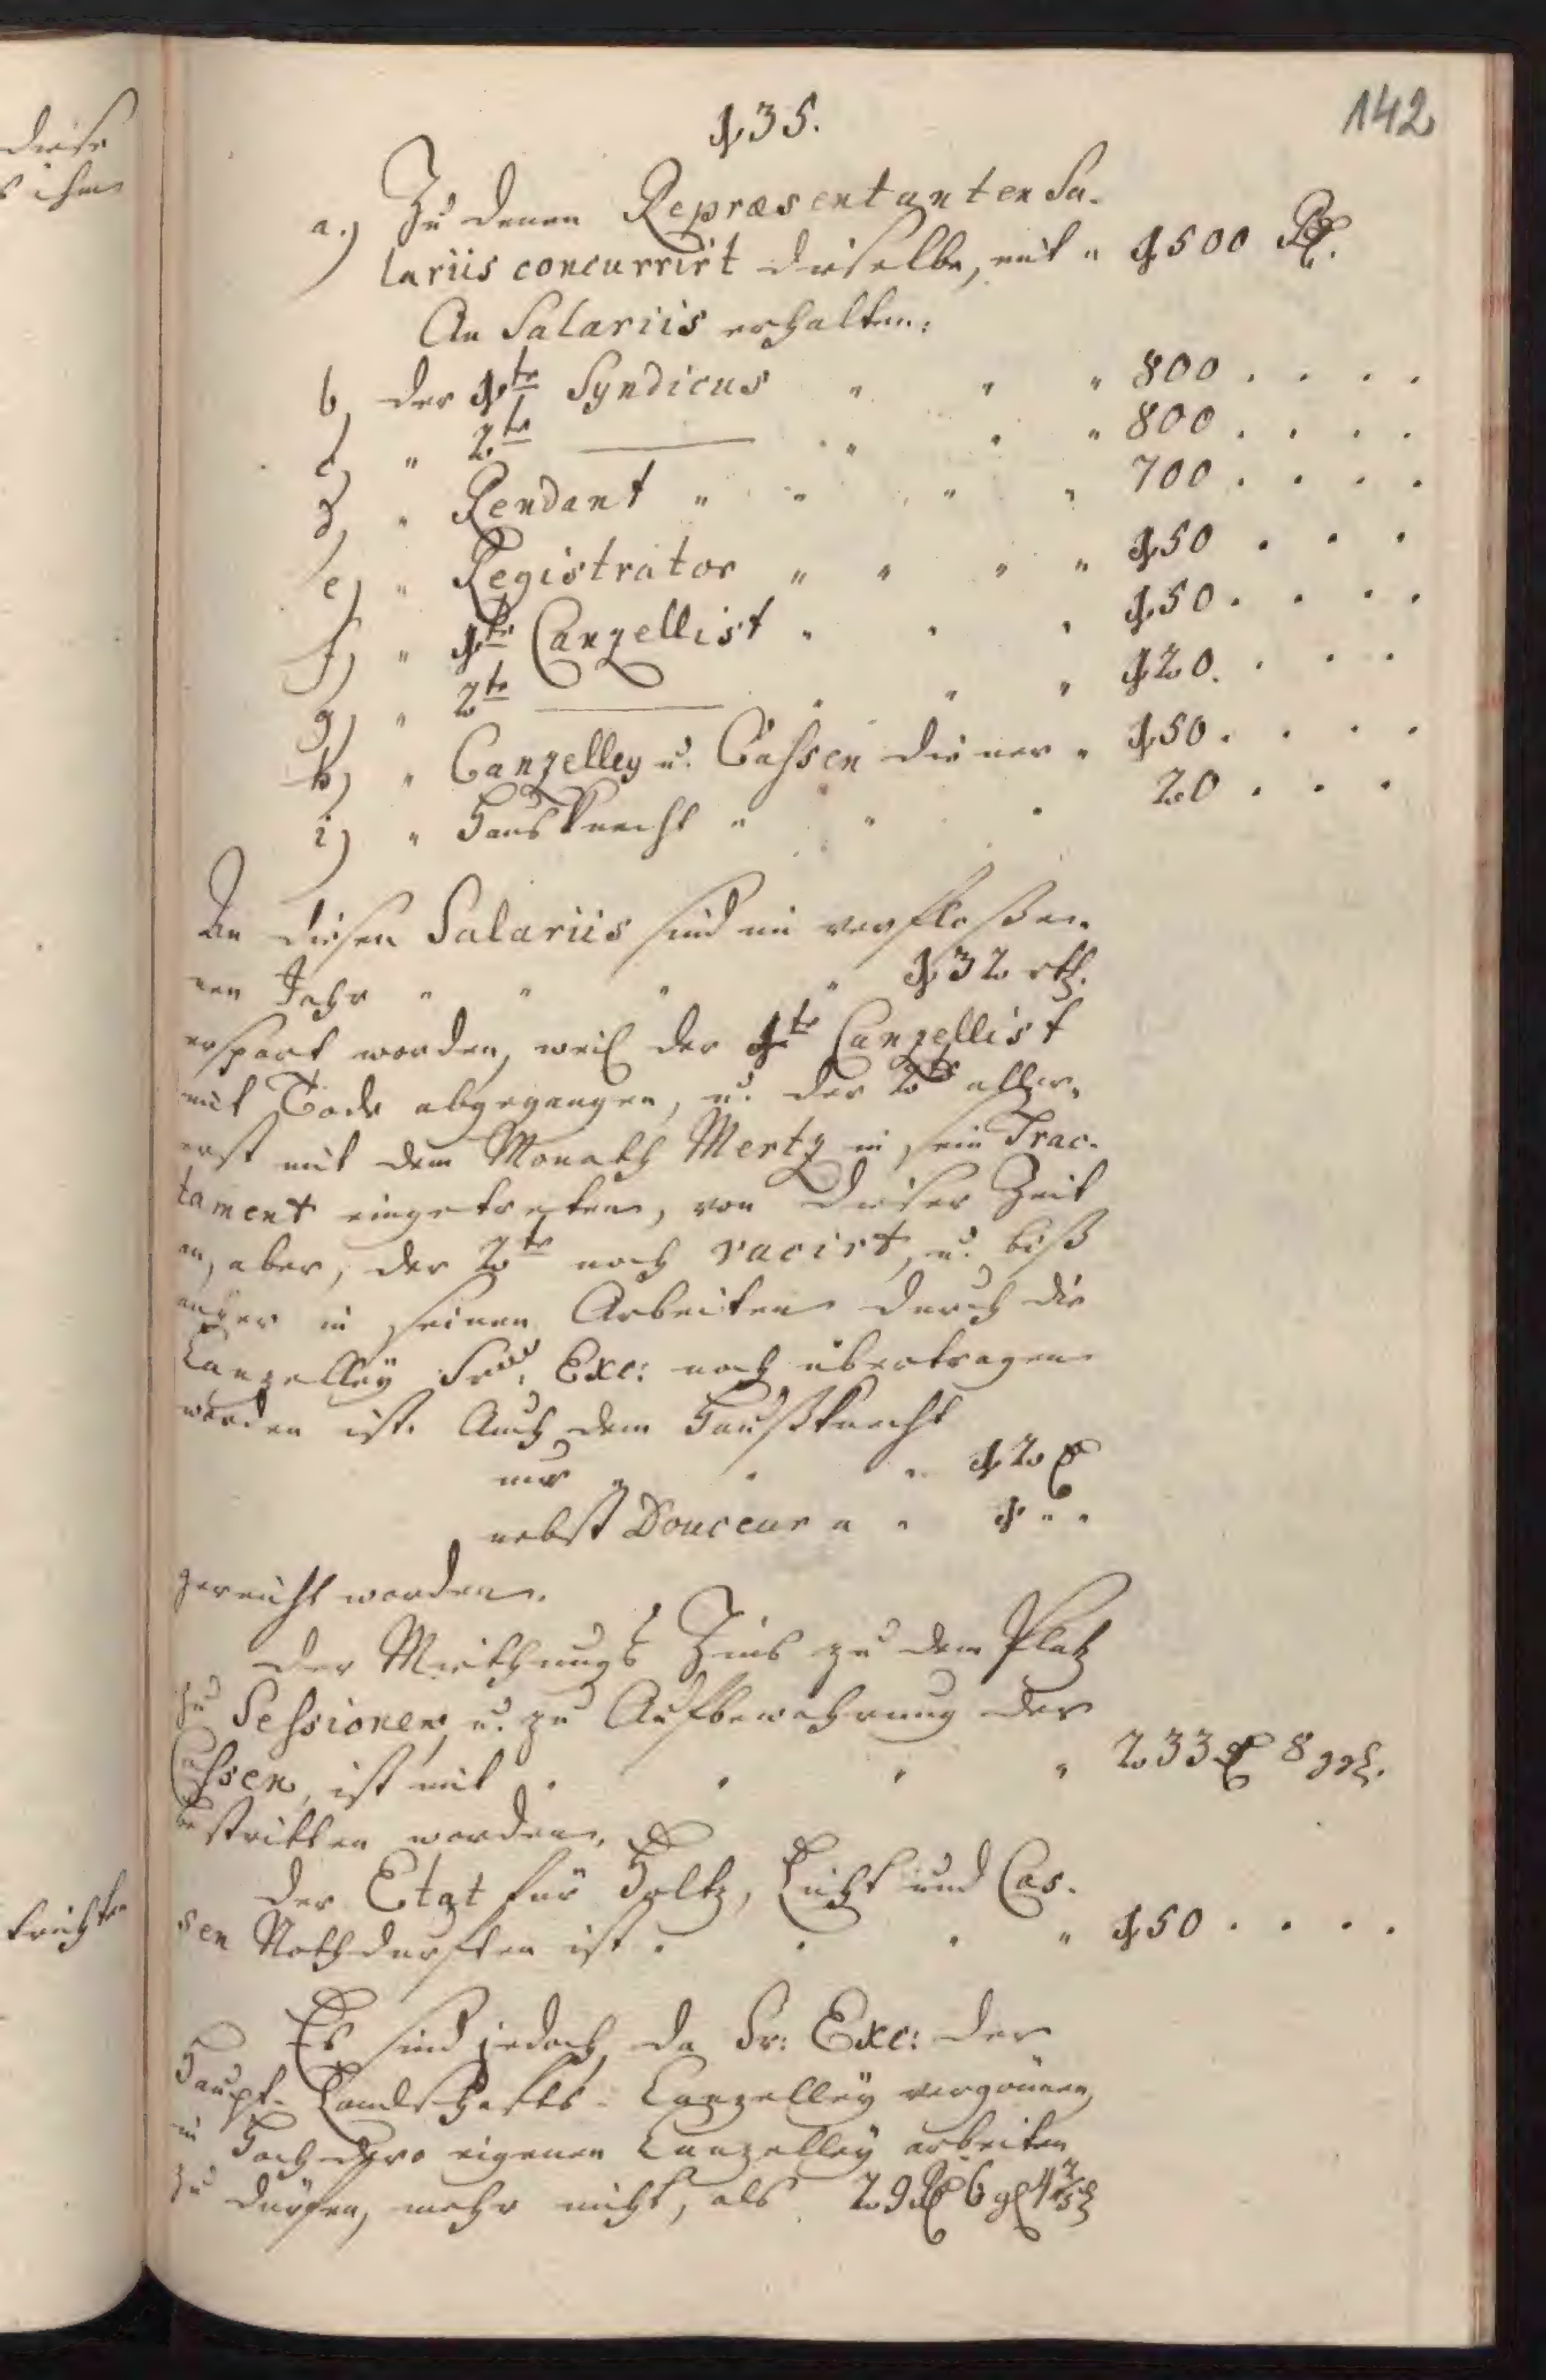 142
135.
a.) Zu denen Repræsentanten Sa-
lariis concurrirt dieselbe, mit " 1500 Rthl.
An Salariis erhalten:
b, der 1te Syndicus " " " 800 . . . .
c, " 2te ——— " " " 800 . . . .
d, " Rendant " " " " 700 . . . .
e) " Registrator " " " " 150 . . .
f) " 1te Canzellist " " " 150 . . . .
g) " 2te ——— " " " 120 . . .
h) " Canzelley u. Cassen diener " 150 . . . .
i) " Hausknecht " " " 20 . . .
An diesen Salariis sind im verfloßen-
nen Jahr " " " " 132 rth.
erspart worden, weil der 1te Canzellist
mit Tode abgegangen, u. der 2te aller-
erst mit dem Monath Mertz in sein Trac-
tament eingetreten, von dieser Zeit
an, aber, der 2te noch vacirt, u. biß
anher in seinen Arbeiten durch die
Canzelley Sr. Exc: noch übertragen
worden ist. Auch dem Haußknecht
nur " " " 12 rthl
nebst Douceur " " 1 " "
gereicht worden.
Der Miethungs Zins zu dem Platz
zu Sessionen, u. zu Aufbewahrung der
Cassen, ist mit " " " " 233 rthl 8 ggl.
bestritten worden.
Der Etat für Holtz, Licht und Cas-
sen Nothdurften ist " " " " 150 . . . .
Es sind jedoch, da Sr: Exc: der
Haupt-Landschafts-Canzelley vergönnen,
in Hochdero eigenen Canzelley arbeiten
zu dürfen, mehr nicht, als 29 Rthl 6 gl 4 2/5 d
diese
ihm